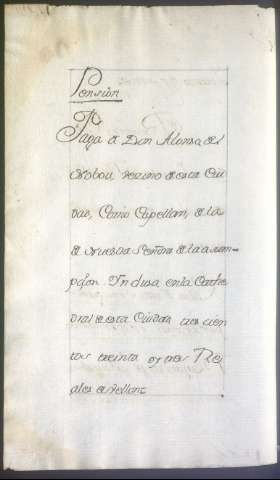 Pension
Paga a Don Alonso de
vezino de esta Ciu
dad, Como Capellan, de la
de Nuestra Señora de la asump
çion Yn clusa en la Cathe
dral de esta Ciudad trescien
tos treinta y tres Re
ales de vellon